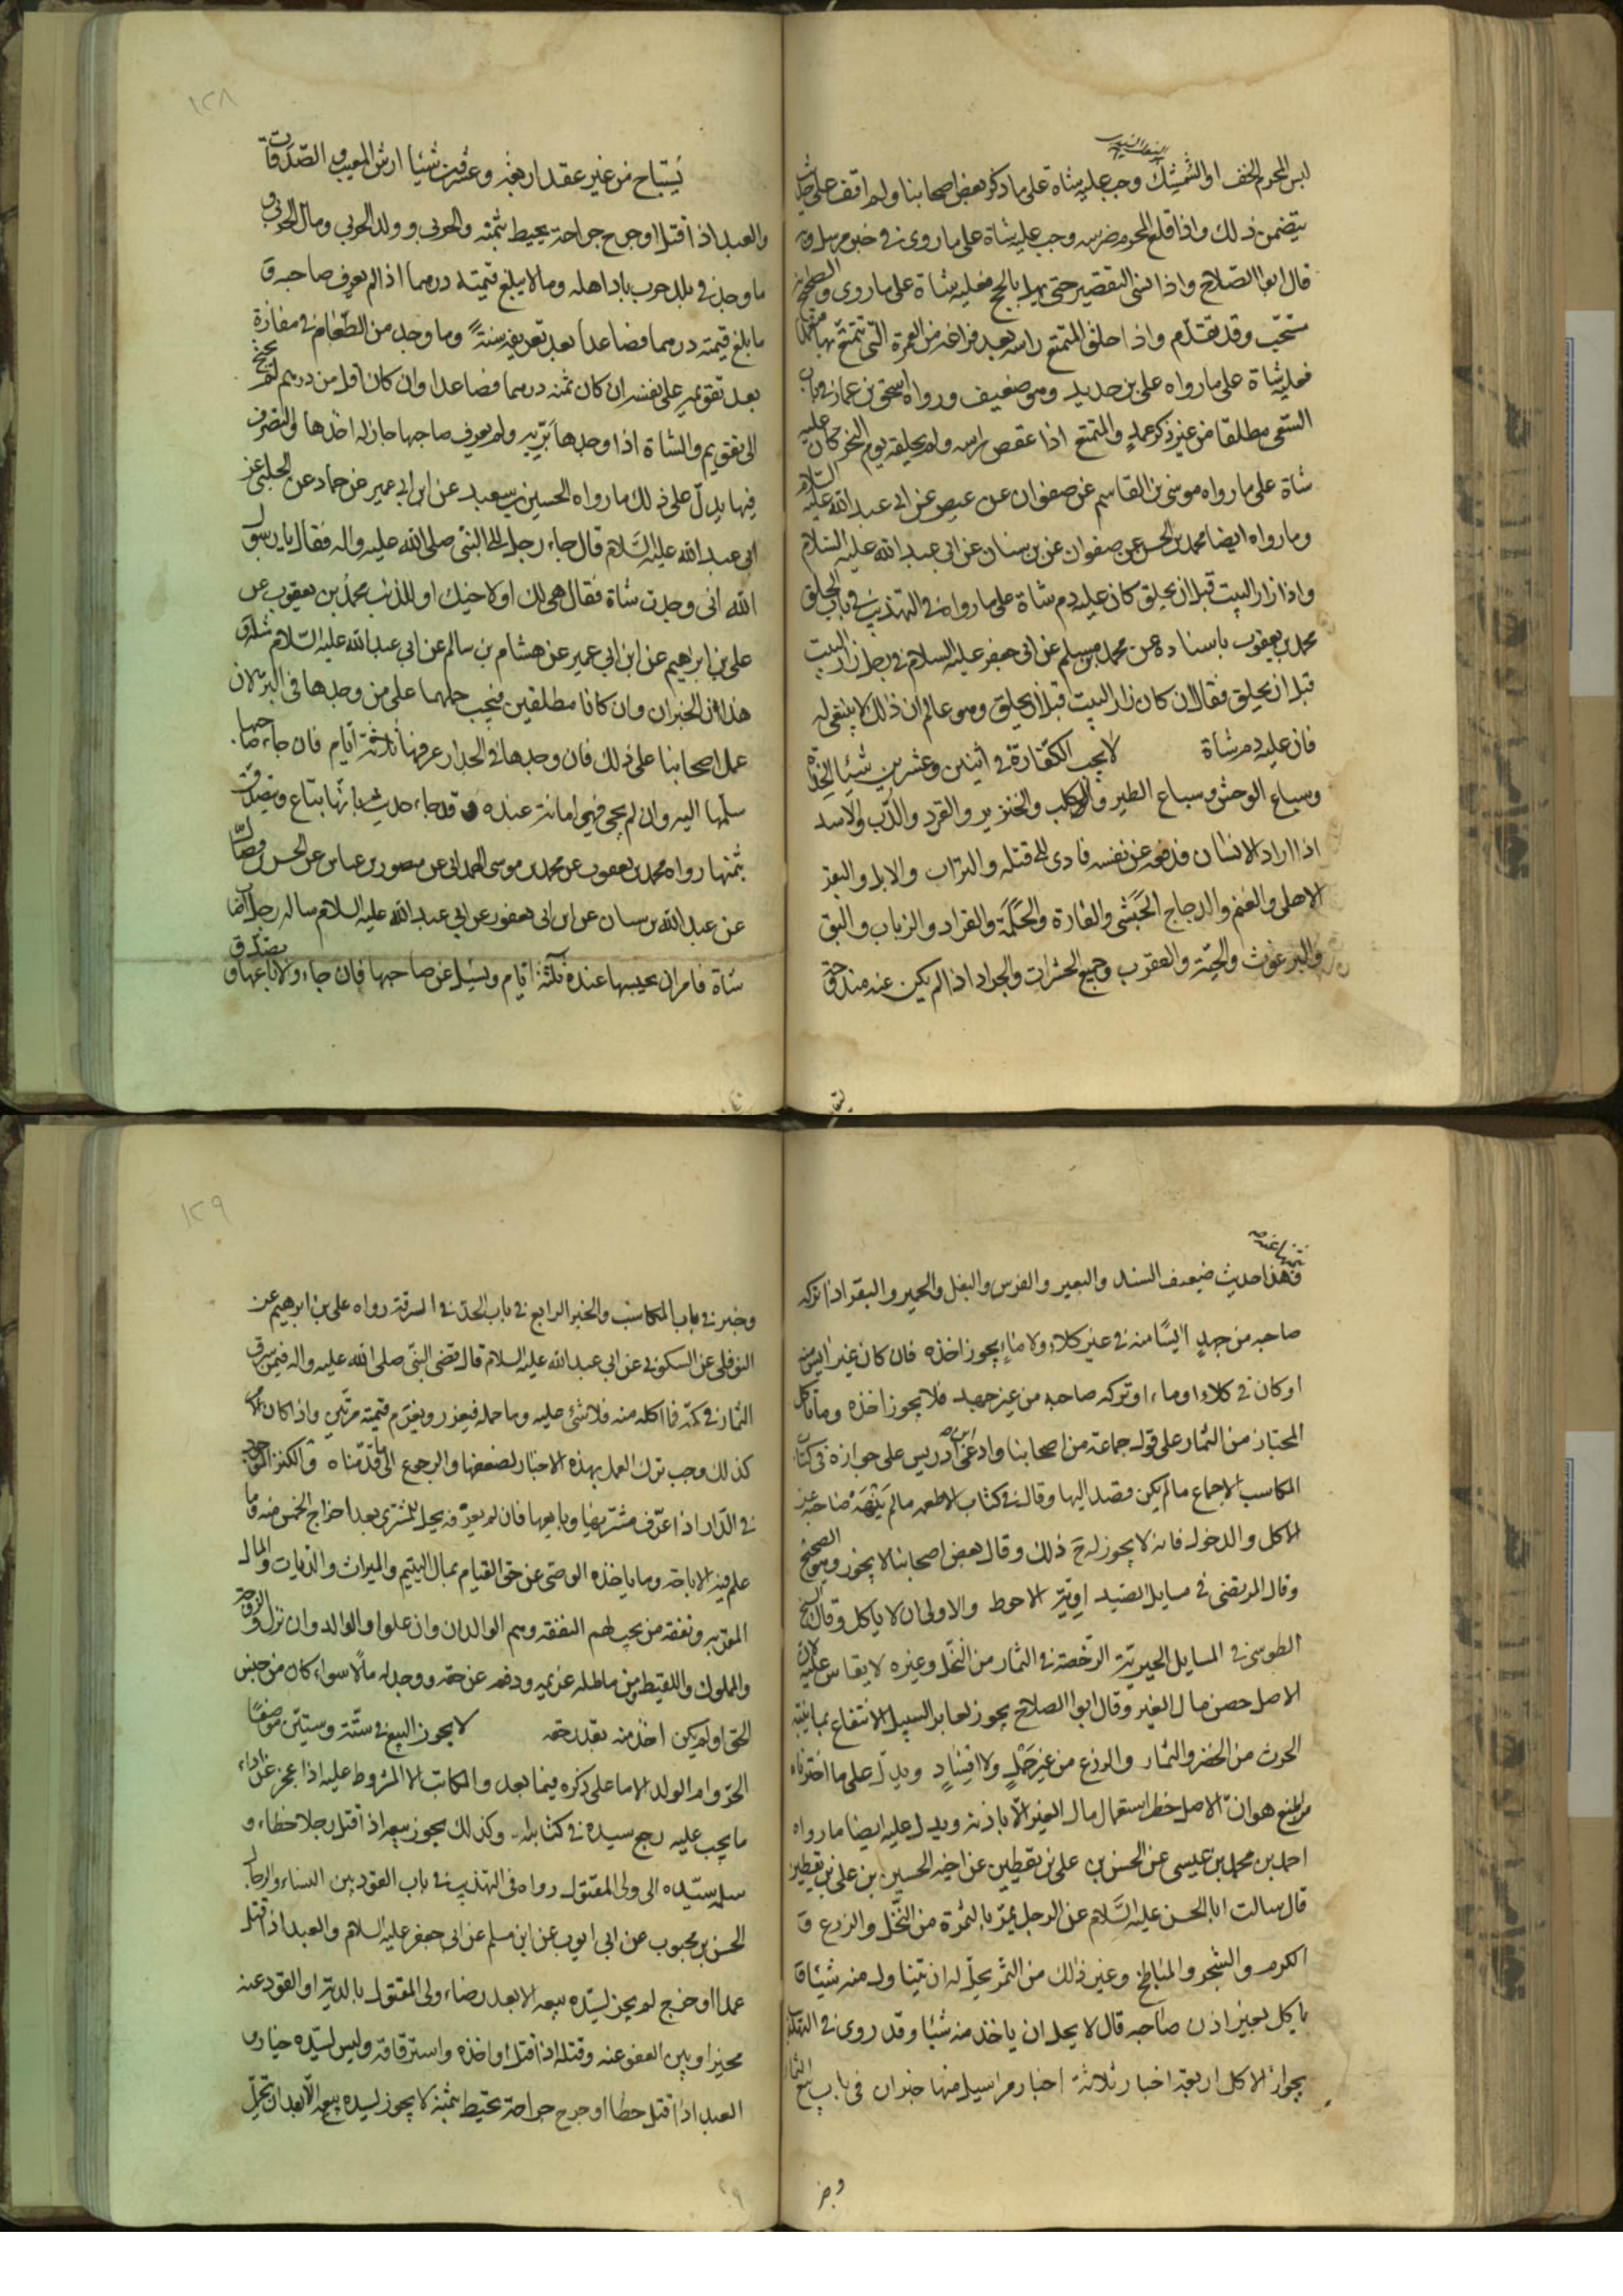 لبس المحرم الخف او الشمشك وجب عليه شاة على ما ذكر بعض اصحابنا ولم اقف على
يتضمن ذلك واذا قلع المحرم ضرسه وجب عليه شاة على ما روى في خبر مرسل
قال ابو الصلاح واذا نسى التقصير حتى يهل بالحج فعليه شاة على ما روى
مستحب وقد تقدم واذا حلق المتمتع راسه بعد فراغه من العمرة التي تمتع بها
فعليه شاة على ما رواه على بن حديد وهو ضعيف ورواه اسحق بن عمار في باب
السعى مطلقا من غير ذكر عمد والمتمتع اذا عقص راسه ولم يحلقه يوم النحر كان عليه
شاة على ما رواه موسى بن القاسم عن صفوان عن عيص عن ابى عبد الله عليه السلام
وما رواه ايضا محمد بن الحسن عن صفوان عن بن سنان عن ابى عبد الله عليه السلام
واذا زار البيت قبل ان يحلق كان عليه دم شاة على ما رواه في التهذيب في باب الحلق
محمد بن يعقوب باسناده عن محمد بن مسلم عن ابى جعفر عليه السلام في رجل زار البيت
قبل ان يحلق فقال ان كان زار البيت قبل ان يحلق وهو عالم ان ذلك لا ينبغى له
فان عليه دم شاة لا يجب الكفارة في اثنين وعشرين شيئا
وسباع الوحش وسباع الطير والكلب والخنزير والقرد والدب والاسد
اذا اراد الانسان فدفعه عن نفسه فادى الى قتله والابل والبقر
الاهلى والغنم والدجاج الحبشى والفارة والحلمة والقراد والذباب والبق
والبرغوث والحية والعقرب وجميع الحشرات والجراد اذا لم يكن عنه مندوحة
١٢٨
يستباح من غير عقد اربعة وعشرون شيئا ارش المعيب والصدقات
والعبد اذا قتل او جرح جراحة يحيط بثمنه والحربى وولد الحربى ومال الحربى و
ما وجد في بلد حرب باد اهله وما لا يبلغ قيمته درهما اذا لم يعرف صاحبه و
ما بلغ قيمته درهما فصاعدا بعد تعريفه سنة وما وجد من الطعام في مفازة
بعد تقويمه على نفسه ان كان ثمنه درهما فصاعدا وان كان اقل من درهم لم يحتج
الى تقويم والشاة اذا وجدها برية ولم يعرف صاحبها جاز له اخذها والتصرف
فيها يدل على ذلك ما رواه الحسين بن سعيد عن ابن ابى عمير عن حماد عن الحلبى عن
ابى عبد الله عليه السلام قال جاء رجل الى النبى صلى الله عليه واله فقال يا رسول
الله انى وجدت شاة فقال هى لك او لاخيك او للذئب محمد بن يعقوب عن
على بن ابراهيم عن ابن ابى عمير عن هشام بن سالم عن ابى عبد الله عليه السلام مثله
هذان الخبران وان كانا مطلقين فيجب حملهما على من وجدها في البر لان
عمل اصحابنا على ذلك فان وجدها في الجدار عرفها ثلاثة ايام فان جاء صاحبها
سلمها اليه وان لم يجئ فهى امانة عنده وقد جاء حديث بانها تباع ويتصدق
بثمنها رواه محمد بن يعقوب عن محمد بن موسى الهمدانى عن منصور بن عباس عن الحسن بن فضال
عن عبد الله بن سنان عن ابن ابى يعفور عن ابى عبد الله عليه السلام ساله رجل اصاب
شاة فامر ان يحبسها عنده ثلثة ايام ويسئل عن صاحبها فان جاء والا باعها وتصدق
بثمنها عنه
وهذا حديث ضعيف السند والبعير والفرس والبغل والحمير والبقر اذا تركه
صاحبه من جهد ايسا منه في غير كلاء ولا ماء يجوز اخذه فان كان غير ايس منه
او كان في كلاء او ماء او تركه صاحبه من غير جهد فلا يجوز اخذه وما ياكل
المجتاز من الثمار على قول جماعة من اصحابنا وادعى ابن ادريس على جوازه في كتاب
المكاسب الاجماع ما لم يكن قصد اليها وقال في كتاب الاطعمه ما لم ينهه صاحبه عن
الاكل والدخول فانه لا يجوز له ذلك وقال بعض اصحابنا لا يجوز وهو الصحيح
وقال المرتضى في مسايل الاحوط والاولى ان لا ياكل وقال الشيخ
الطوسى في المسايل الحيريه الرخصة في الثمار من النخل وغيره لا يقاس عليه لان
الاصل حصر مال الغير وقال ابو الصلاح يجوز لعابر السبيل الانتفاع بما ينبته
الحرث من الخضر والثمار والزرع من غير حمل ولا افساد ويدل على ما اخترناه
من المنع هو ان الاصل حظر استعمال مال الغير الا باذنه ويدل عليه ايضا ما رواه
احمد بن محمد بن عيسى عن الحسن بن على بن يقطين عن اخيه الحسين بن على بن يقطين
قال سالت ابا الحسن عليه السلام عن الرجل يمر بالثمرة من النخل والزرع و
الكرم والشجر والمباطخ وغير ذلك من الثمر يحل له ان يتناول منه شيئا
ياكل بغير اذن صاحبه قال لا يحل ان ياخذ منه شيئا وقد روى في التهذيب
بجواز الاكل اربعة اخبار ثلاثة اخبار مراسيل منها خبران في باب بيع الثمار
وخبر
١٢٩
وخبر في باب المكاسب والخبر الرابع في باب الحد في السرقة رواه على بن ابرهيم عن
النوفلى عن السكونى عن ابى عبد الله عليه السلام قال قضى النبى صلى الله عليه واله فيمن سرق
الثمار في كمه فما اكله منه فلا شئ عليه وما حمله فيعزر ويغرم قيمته مرتين واذا كان الامر
كذلك وجب ترك العمل بهذه الاخبار لضعفها والرجوع الى ما قدمناه والكنز الموجود
في الدار اذا عرف مشتريها وبايعها فان لم يعرفه يحل للمشترى بعد اخراج الخمس منه وما
علم فيه الاباحة وما ياخذه الوصى عن حق القيام بمال اليتيم والميراث والديات والمال
المقر به ونفقة من يجب لهم النفقه وهم الوالدان وان علوا والوالد وان نزل والزوجة
والمملوك واللقيط ومن ماطله غريمه ودفعه عن حقه ووجد له مالا سواء كان من جنس
الحق او لم يكن اخذ منه بقدر حقه لا يجوز البيع في ستة وستين موضعا
الحر وام الولد الا ما على ذكره فيما بعد والمكاتب الا المشروط عليه اذا عجز عن اداء
ما يجب عليه رجع سيده في كتابته وكذلك يجوز بيعه اذا قتل رجلا خطاء و
سلمه سيده الى ولى المقتول رواه في التهذيب في باب القود بين النساء والرجال
الحسن بن محبوب عن ابى ايوب عن ابن مسلم عن ابى جعفر عليه السلام والعبد اذا قتل
عمدا او خرج لم يجز لسيده بيعه الا بعد رضاء ولى المقتول بالدية او العفو عنه
مخير او بين العفو عنه وقتله اذا قتل او اخذه واسترقاقه وليس لسيده خيار و
العبد اذا قتل خطا او جرح جراحة تحيط بثمنه لا يجوز لسيده بيعه الا بعد ان